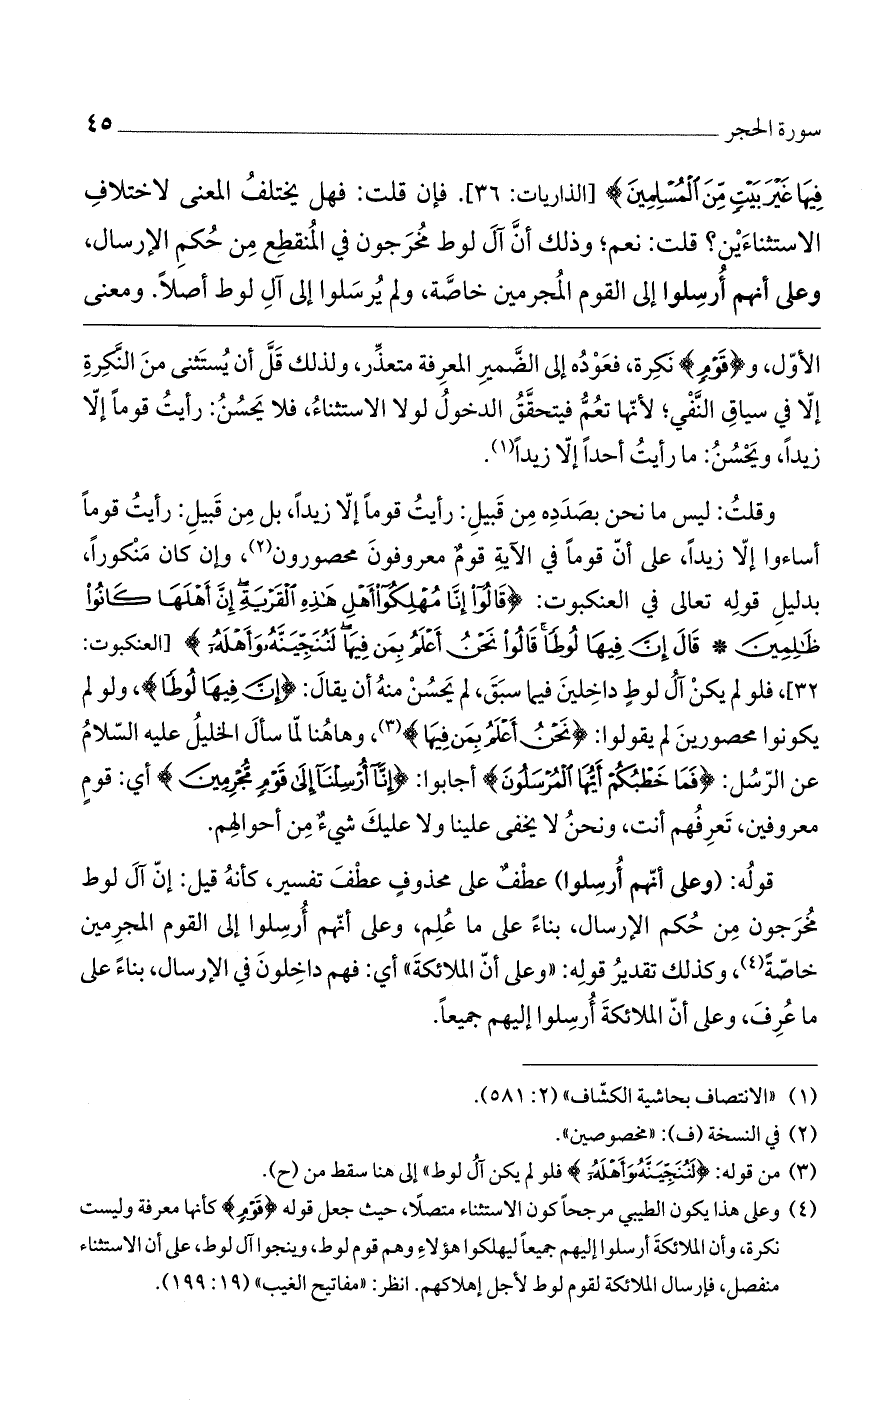 سورة الحجر ٤٥
فِيهَا غَيْرَ بَيْتٍ مِّنَ الْمُسْلِمِينَ﴾ [الذاريات: ٣٦]. فإن قلت: فهل يختلفُ المعنى لاختلافِ
الاستثناءَيْن؟ قلت: نعم؛ وذلك أنَّ آلَ لوط مُخرَجون في المُنقطِع مِن حُكمِ الإرسال،
وعلى أنهم أُرسِلوا إلى القوم المُجرمين خاصَّة، ولم يُرسَلوا إلى آلِ لوط أصلاً. ومعنى
الأوّل، و﴿قَوْمٍ﴾ نَكِرة، فعَوْدُه إلى الضَّميرِ المعرِفة متعذِّر، ولذلك قَلَّ أن يُستَثنى منَ النَّكِرةِ
إلّا في سياقِ النَّفْي؛ لأنّها تعُمُّ فيتحقَّقُ الدخولُ لولا الاستثناءُ، فلا يَحسُنُ: رأيتُ قوماً إلّا
زيداً، ويَحْسُنُ: ما رأيتُ أحداً إلّا زيداً(١).
وقلتُ: ليس ما نحن بصَدَدِه مِن قَبيلِ: رأيتُ قوماً إلّا زيداً، بل مِن قَبيلِ: رأيتُ قوماً
أساءوا إلّا زيداً، على أنّ قوماً في الآيةِ قومٌ معروفونَ محصورون(٢)، وإن كان مَنْكوراً،
بدليلِ قولِه تعالى في العنكبوت: ﴿قَالُوٓا۟ إِنَّا مُهْلِكُوٓا۟ أَهْلِ هَٰذِهِ الْقَرْيَةِ ۖ إِنَّ أَهْلَهَا كَانُوا۟
ظَٰلِمِينَ * قَالَ إِنَّ فِيهَا لُوطًا ۚ قَالُوا۟ نَحْنُ أَعْلَمُ بِمَن فِيهَا ۖ لَنُنَجِّيَنَّهُۥ وَأَهْلَهُۥٓ﴾ [العنكبوت:
٣٢]، فلو لم يكنْ آلُ لوطٍ داخِلينَ فيما سبَقَ، لم يَحسُنْ منهُ أن يقالَ: ﴿إِنَّ فِيهَا لُوطًا﴾، ولو لم
يكونوا محصورينَ لم يقولوا: ﴿نَحْنُ أَعْلَمُ بِمَن فِيهَا﴾(٣)، وهاهُنا لمّا سألَ الخليلُ عليه السّلامُ
عن الرّسُل: ﴿فَمَا خَطْبُكُمْ أَيُّهَا الْمُرْسَلُونَ﴾ أجابوا: ﴿إِنَّآ أُرْسِلْنَآ إِلَىٰ قَوْمٍ مُّجْرِمِينَ﴾ أي: قومٍ
معروفين، تَعرِفُهم أنت، ونحنُ لا يخفى علينا ولا عليكَ شيءٌ مِن أحوالِهم.
قولُه: (وعلى أنّهم أُرسِلوا) عطْفٌ على محذوفٍ عطْفَ تفسير، كأنهُ قيل: إنّ آلَ لوط
مُخرَجون مِن حُكم الإرسال، بناءً على ما عُلِم، وعلى أنّهم أُرسِلوا إلى القوم المجرِمين
خاصّةً(٤)، وكذلك تقديرُ قولِه: «وعلى أنّ الملائكةَ» أي: فهم داخِلونَ في الإرسال، بناءً على
ما عُرِفَ، وعلى أنّ الملائكةَ أُرسِلوا إليهم جميعاً.
(١) «الانتصاف بحاشية الكشّاف» (٢: ٥٨١).
(٢) في النسخة (ف): «مخصوصين».
(٣) من قوله: ﴿لَنُنَجِّيَنَّهُۥ وَأَهْلَهُۥٓ﴾ فلو لم يكن آلُ لوط» إلى هنا سقط من (ح).
(٤) وعلى هذا يكون الطيبي مرجحاً كون الاستثناء متصلًا، حيث جعل قوله ﴿قَوْمٍ﴾ كأنها معرفة وليست
نكرة، وأن الملائكة أرسلوا إليهم جميعاً ليهلكوا هؤلاءِ وهم قوم لوط، وينجوا آل لوط، على أن الاستثناء
منفصل، فإرسال الملائكة لقوم لوط لأجل إهلاكهم. انظر: «مفاتيح الغيب» (١٩: ١٩٩).